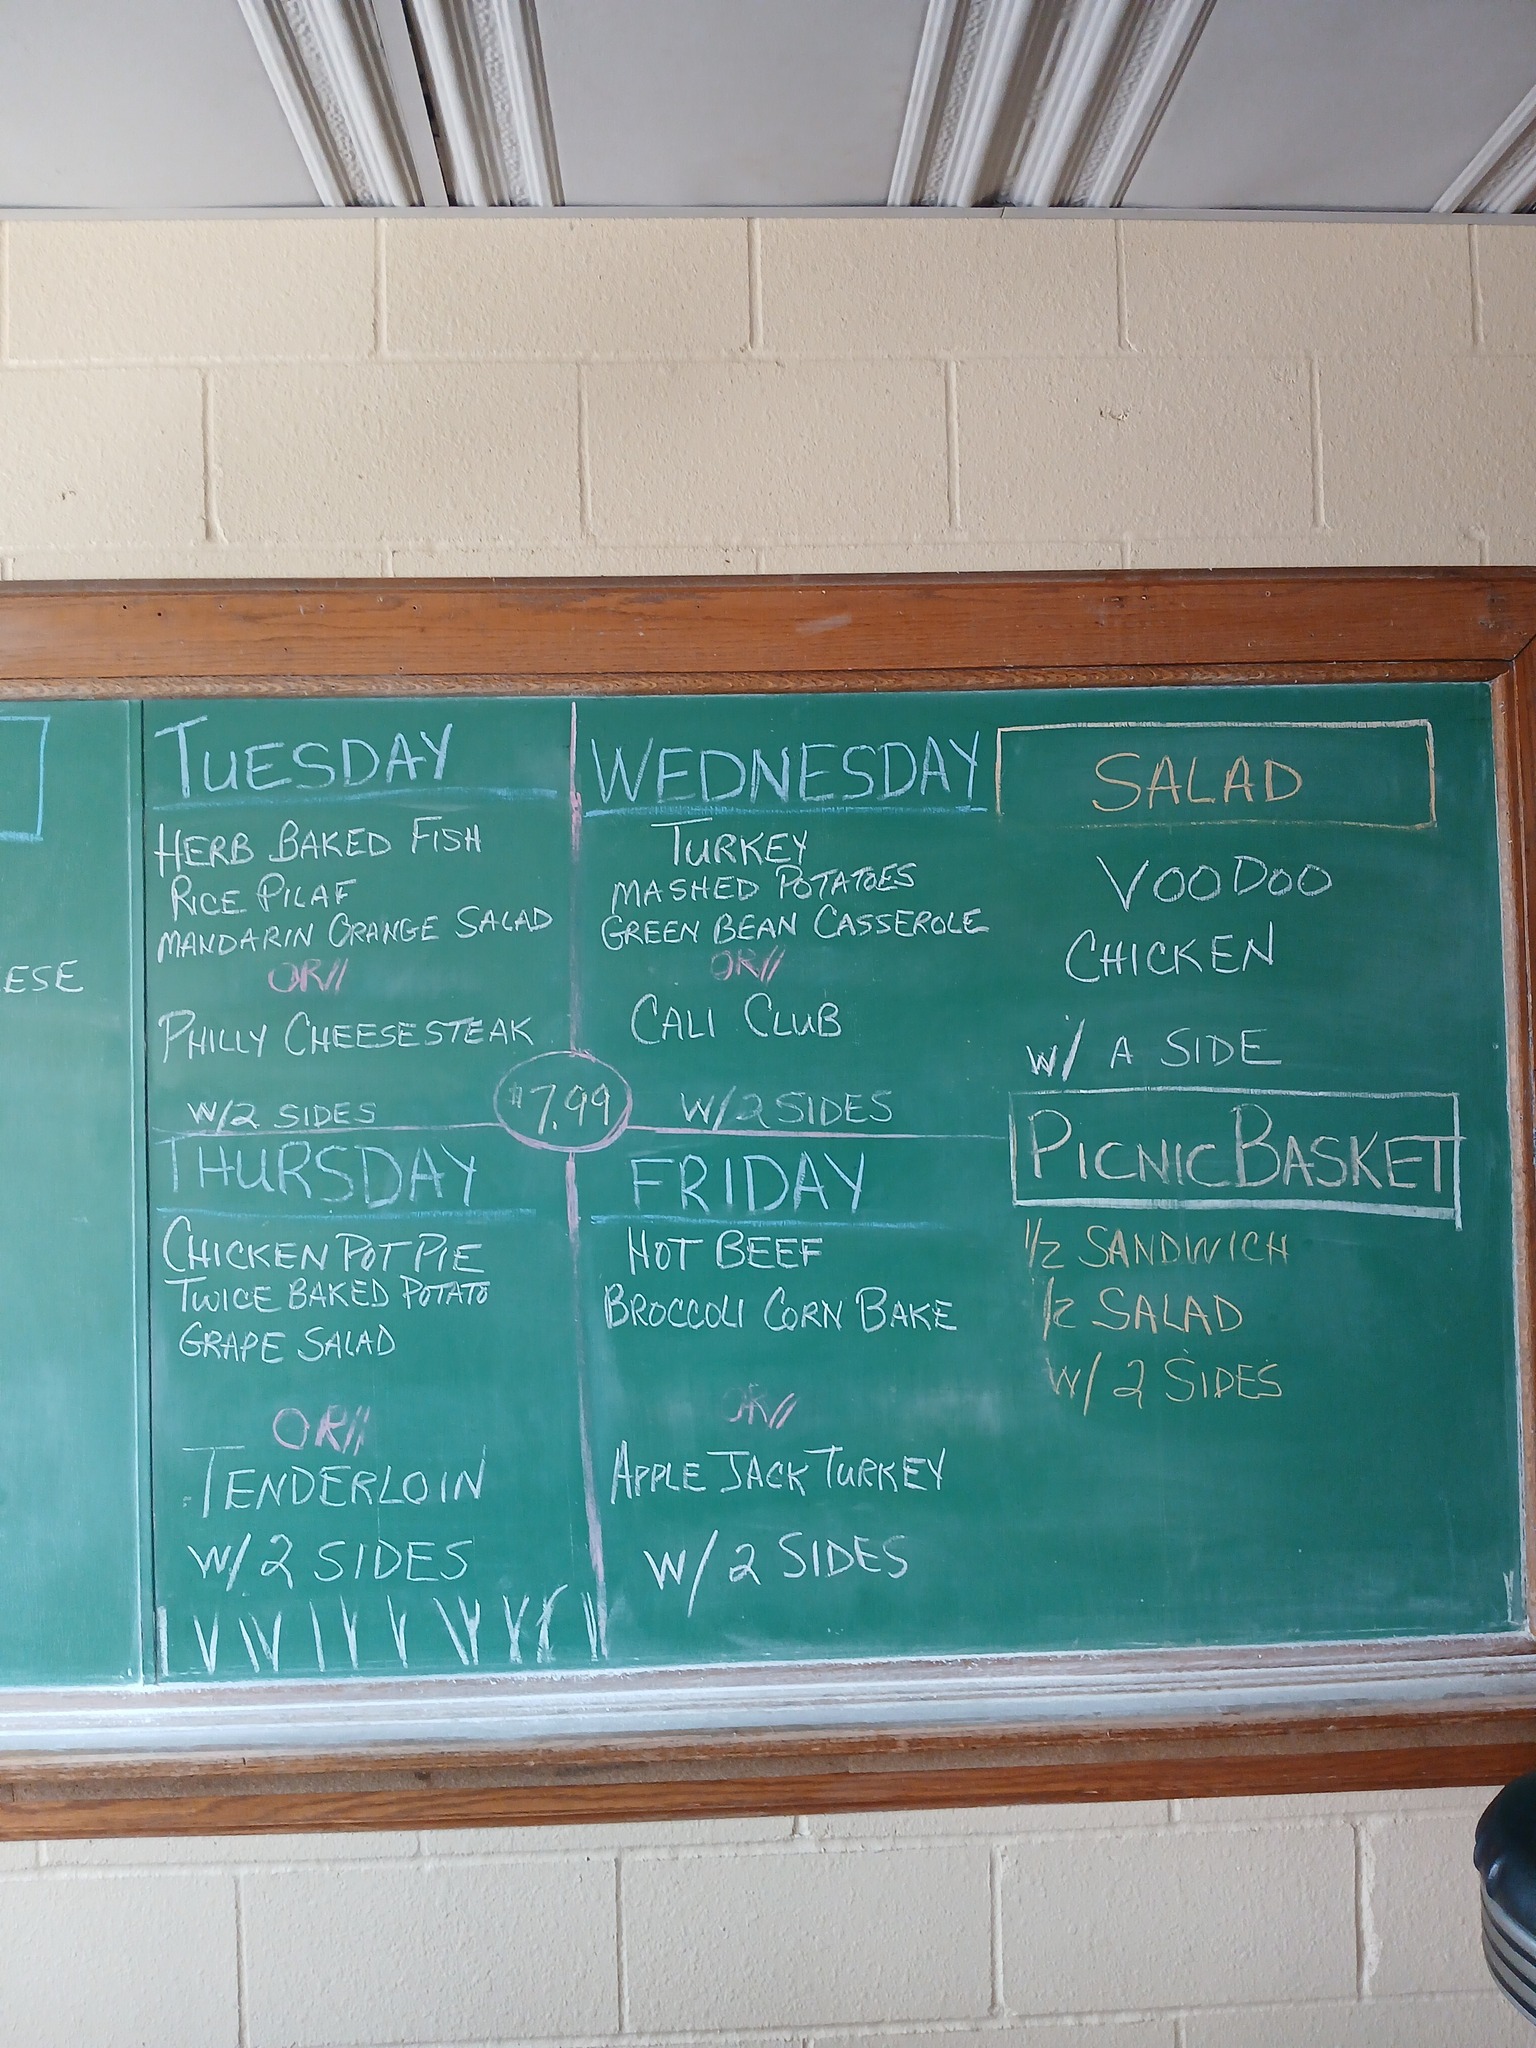 ESE
TUESDAY
HERB BAKED FISH
RICE PILAF
MANDARIN ORANGE SALAD
OR//
PHILLY CHEESESTEAK
W/2 SIDES
WEDNESDAY
TURKEY
MASHED POTATOES
GREEN BEAN CASSEROLE
OR//
CALI CLUB
W/2 SIDES
$7.99
THURSDAY
CHICKEN POT PIE
TWICE BAKED POTATO
GRAPE SALAD
OR//
TENDERLOIN
W/2 SIDES
FRIDAY
HOT BEEF
BROCCOLI CORN BAKE
OR//
APPLE JACK TURKEY
W/2 SIDES
SALAD
VOODOO
CHICKEN
W/ A SIDE
PICNIC BASKET
1/2 SANDWICH
1/2 SALAD
W/2 SIDES